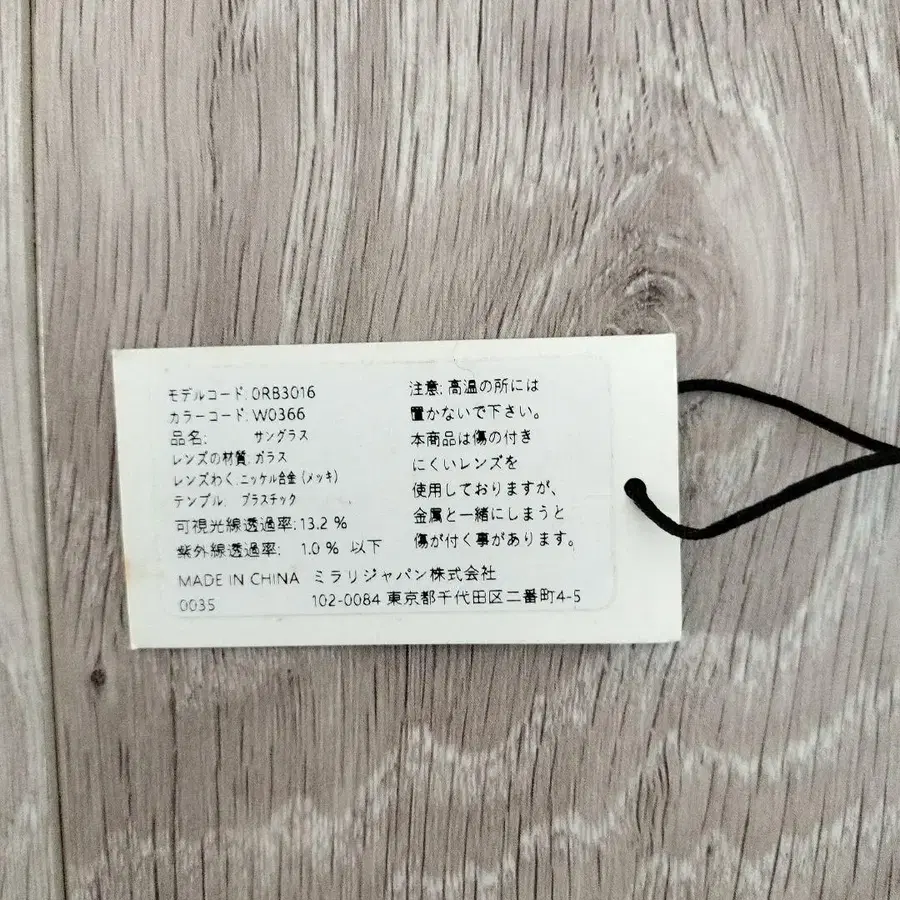 モデルコード: 0RB3016
カラーコード: W0366
品名: サングラス
レンズの材質: ガラス
レンズわく: ニッケル合金 (メッキ)
テンプル: プラスチック
可視光線透過率: 13.2 %
紫外線透過率: 1.0 % 以下
注意: 高温の所には
置かないで下さい。
本商品は傷の付き
にくいレンズを
使用しておりますが、
金属と一緒にしまうと
傷が付く事があります。
MADE IN CHINA ミラリジャパン株式会社
0035 102-0084 東京都千代田区二番町4-5